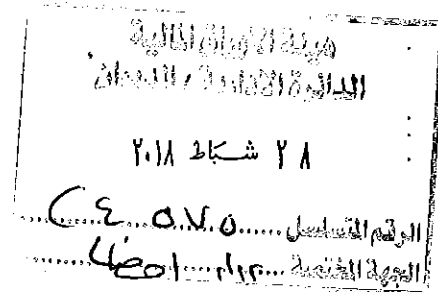 هيئة الأوراق المالية
الدائرة الإدارية / الديوان
٢٨ شباط ٢٠١٨
الرقم المتسلسل ......٥٧٥ ٤
الجهة المختصة ......